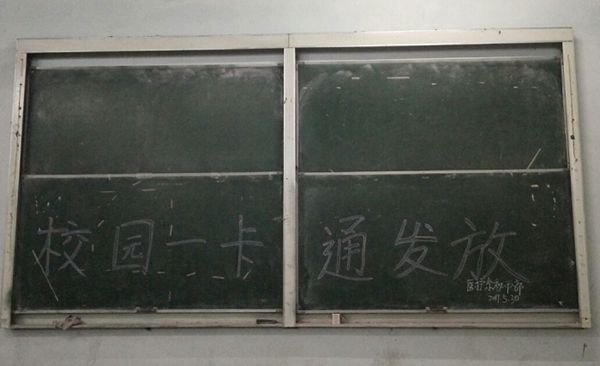 校园一卡通发放
2017.5.30